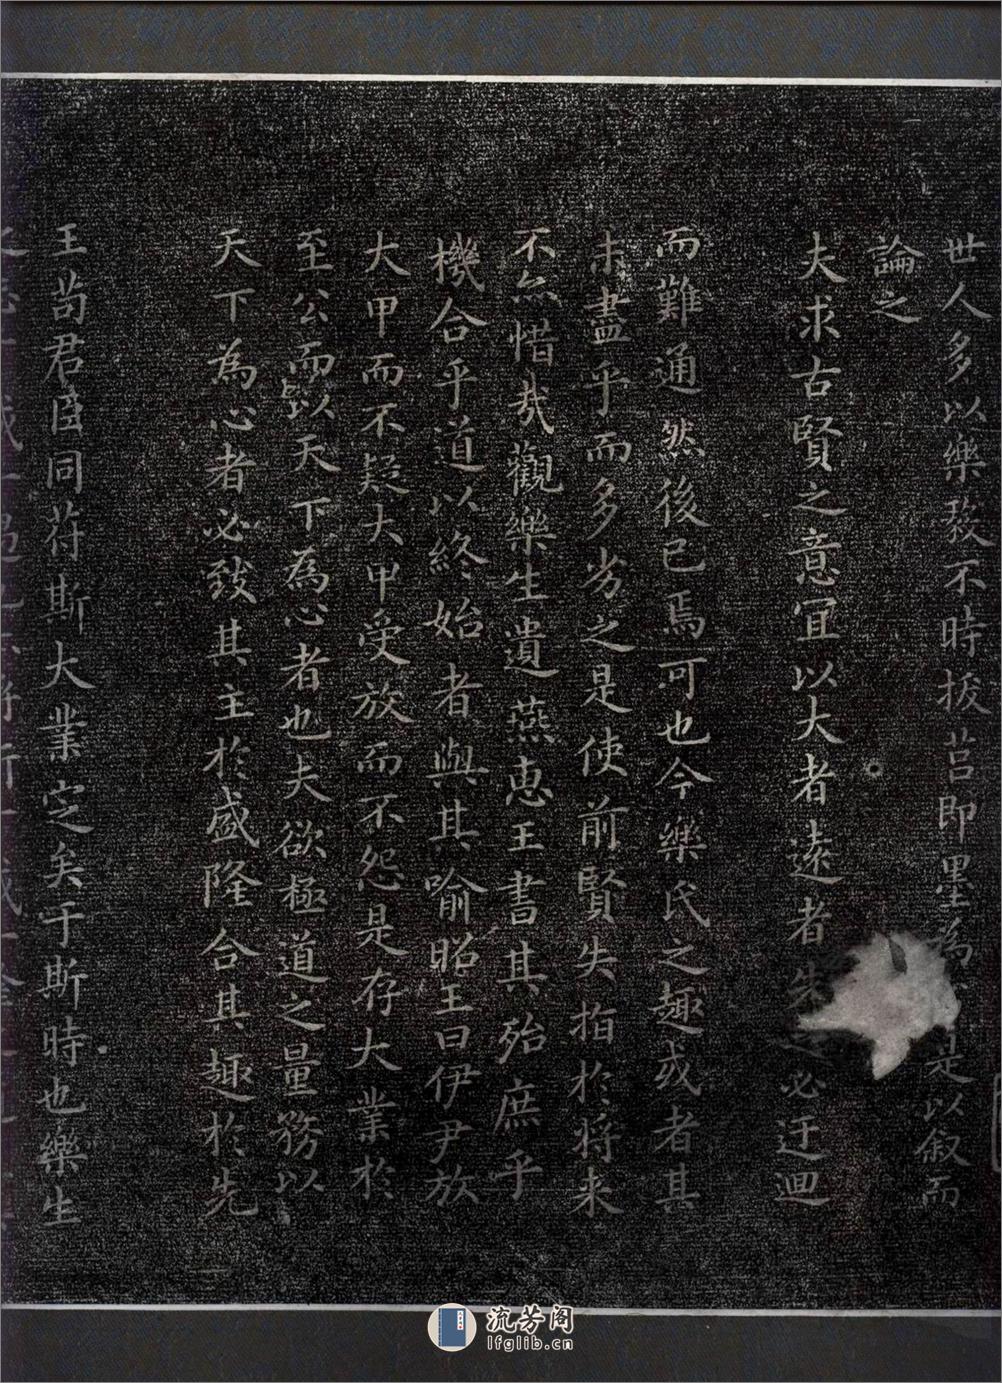 世人多以樂毅不時拔莒即墨為是以叙而
論之
夫求古賢之意宜以大者遠者先之必迂迴
而難通然後已焉可也今樂氏之趣或者其
未盡乎而多劣之是使前賢失指於将来
不亦惜哉觀樂生遺燕惠王書其殆庶乎
機合乎道以終始者與其喻昭王曰伊尹放
大甲而不疑大甲受放而不怨是存大業於
至公而以天下為心者也夫欲極道之量務以
天下為心者必致其主於盛隆合其趣於先
王苟君臣同苻斯大業定矣于斯時也樂生
流芳阁
lfglib.cn